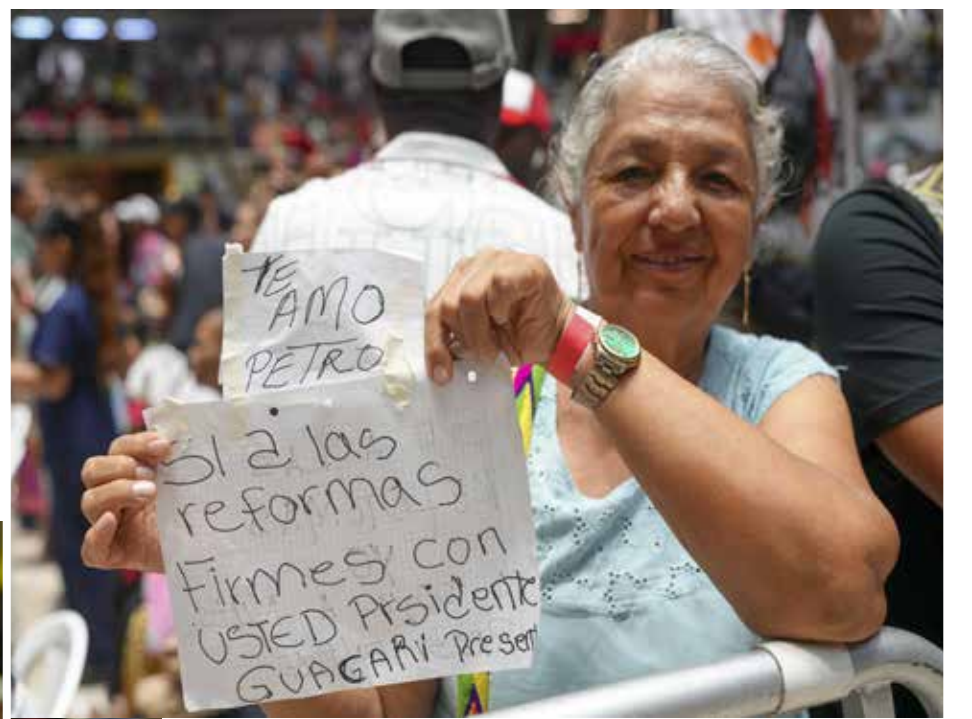 TE
AMO
PETRO
SI a las
reformas
Firmes con
USTED Prsidente
GUAGARI Present